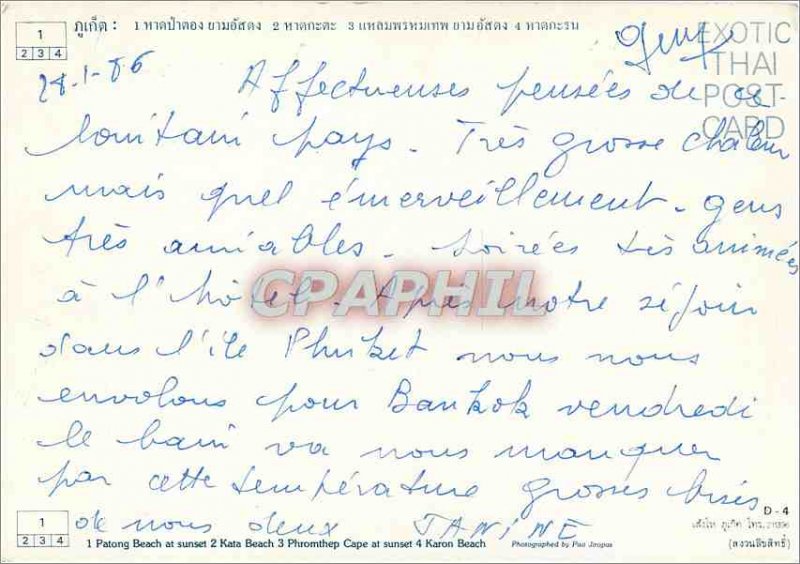 1
2 3 4
ภูเก็ต : 1 หาดป่าตอง ยามอัสดง 2 หาดกะตะ 3 แหลมพรหมเทพ ยามอัสดง 4 หาดกะรน
EXOTIC
THAI
POST-
CARD
28-1-86
Affectueuses pensées de ce
lointain pays - Très grosse chaleur
mais quel émerveillement - gens
très amiables - soirées très animées
à l'hôtel - Après notre séjour
dans l'île Phuket nous nous
envolons pour Bankok vendredi
le bain va nous manquer
par cette température grosses bises
de nous deux JANINE
CPAPHIL
1
2 3 4
D - 4
1 Patong Beach at sunset 2 Kata Beach 3 Phromthep Cape at sunset 4 Karon Beach
Photographed by Pao
(สงวนลิขสิทธิ์)